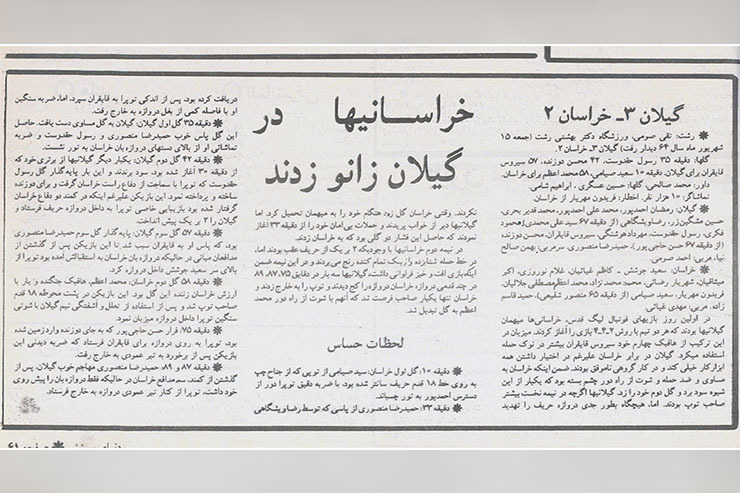 گیلان ۳ـ خراسان ۲
✷ رشت: تقی صومی. ورزشگاه دکتر بهشتی رشت (جمعه ۱۵
شهریور ماه سال ۶۴ دیدار رفت) گیلان ۳ـ خراسان ۲.
گلها: دقیقه ۳۵ رسول حقدوست، ۴۲ محسن دوزنده، ۵۷ سیروس
قایقران برای گیلان. دقیقه ۱۰ سعید صیامی، ۵۸ محمد اعظم برای خراسان.
داور: محمد صالحی، گلها: حسین عسگری ـ ابراهیم شامی.
تماشاگر: ۱۰ هزار نفر. اخطار: فریدون مهریار از خراسان.
✷ گیلان: رمضان احمدپور، محمد علی احمدپور، محمد قدیر بحری،
حسین مشگین‌زر، رضا ویشگاهی (از دقیقه ۶۷ سید علی محمدی) محمود
فکری، رسول حقدوست، مهرداد هوشنگی، سیروس قایقران، محسن دوزنده
(از دقیقه ۶۷ حسن حاجی پور)، حمیدرضا منصوری. سرمربی: بهمن صالح
نیا. مربی: احمد صومی.
✷ خراسان: سعید جوشش ـ کاظم غیاثیان، غلام نوروزی، اکبر
میثاقیان، شهریار رضائی، محمد محمد نژاد، محمد اعظم، مصطفی جلالیان،
فریدون مهریار، سعید صیامی (از دقیقه ۶۵ منصور شفیعی)، حمید قاسم
زاده. مربی: مهدی غیاثی.
در اولین روز بازیهای فوتبال لیگ قدس، خراسانی‌ها میهمان
گیلانیها بودند که هر دو تیم با روش ۲ـ۴ـ۴ بازی را آغاز کردند. میزبان در
این ترکیب از هافبک چهارم خود سیروس قایقران بیشتر در نوک حمله
استفاده میکرد. گیلان در برابر خراسان علیرغم در اختیار داشتن همه
ابزار کار خیلی کند و در کار گروهی ناموفق بودند. ضمن اینکه خراسان به
مساوی و ضد حمله و شوت از راه دور چشم بسته بود که یکبار از این
شیوه سود برد و گل دوم خود را زد. گیلانیها اگرچه در نیمه نخست بیشتر
صاحب توپ بودند. اما، هیچگاه بطور جدی دروازه حریف را تهدید
خراسانیها در
گیلان زانو زدند
نکردند. وقتی خراسان گل زود هنگام خود را به میهمان تحمیل کرد اما
گیلانیها دیر از خواب پریدند و حملات بی‌امان خود را از دقیقه ۳۳ آغاز
نمودند که حاصل این فشار دو گلی بود که به خراسان زدند.
در نیمه دوم خراسانیها با وجودیکه ۲ بر یک از حریف عقب بودند اما،
در خط حمله شتابزده واز یک تمام کننده رنج می‌بردند و در این نیمه ضمن
اینکه بازی افت و خیز فراوانی داشت، گیلانیها سه بار در دقایق ۷۵، ۸۷، ۸۹
در چند قدمی دروازه خراسان راه را کج دیدند و توپ را به خارج زدند و
خراسان تنها یکبار صاحب فرصت شد که آنهم با شوت از راه دور محمد
اعظم به گل تبدیل شد.
لحظات حساس
✷ دقیقه ۱۰: گل اول خراسان، سید صیامی از توپی که از جناح چپ
به روی خط ۱۸ قدم حریف سانتر شده بود، با ضربه دقیق توپ را دور از
دسترس احمدپور به تور چسباند.
✷ دقیقه ۳۳: حمیدرضا منصوری از پاسی که توسط رضا ویشگاهی
دریافت کرده بود، پس از اندکی توپ را به قایقران سپرد، اما، ضربه سنگین
او با فاصله کمی از بغل دروازه به خارج رفت.
✷ دقیقه ۳۵ گل اول گیلان: گیلان به گل مساوی دست یافت. حاصل
این گل پاس خوب حمیدرضا منصوری و رسول حقدوست و ضربه
تماشائی او از بالای دستهای دروازه بان خراسان به تور نشست.
✷ دقیقه ۴۲ گل دوم گیلان: یکبار دیگر گیلانیها از برتری خود که
از دقیقه ۳۰ آغاز شده بود، سود برندند و این بار پایه‌گذار گل رسول
حقدوست که توپ را با سماجت از دفاع راست خراسان گرفت و برای دوزنده
ساخته و پرداخته نمود. این بازیکن علیرغم اینکه در کمند دو دفاع خراسان
گرفتار شده بود با زیبایی خاصی توپ را به داخل دروازه حریف فرستاد و
گیلان را ۲ بر یک پیش انداخت.
✷ دقیقه ۵۷ گل سوم گیلان: پایه‌گذار گل سوم حمیدرضا منصوری
بود، که پاس او به قایقران سبب شد تا این بازیکن پس از گذشتن از
مدافعان میانی در حالیکه دروازه بان خراسان به استقبالش آمده بود توپ را از
بالای سر سعید جوشش داخل دروازه کرد.
✷ دقیقه ۵۸ گل دوم خراسان: محمد اعظم، هافبک جنگنده و یار با
ارزش خراسان زننده این گل بود. این بازیکن در پشت محوطه ۱۸ قدم
صاحب توپ شد و پس از استفاده از تعلل و آشفتگی تیم گیلان با شوتی
سنگین توپ را داخل دروازه میزبان نمود.
✷ دقیقه ۷۵: فرار حسن حاجی پور که به جای دوزنده وارد زمین شده
بود، توپ را به روی دروازه برای قایقران فرستاد که ضربه دیدنی این
بازیکن پس از برخورد به تیر عمودی به خارج رفت.
✷ دقیقه ۸۷ و ۸۹: حمیدرضا منصوری مهاجم خوب گیلان، پس از
گذشتن از کمند، سه مدافع خراسان در حالیکه فقط دروازه بان را پیش روی
خود داشت، توپ را از کنار تیر عمودی دروازه به خارج فرستاد.
✷ صفحه ۶۱